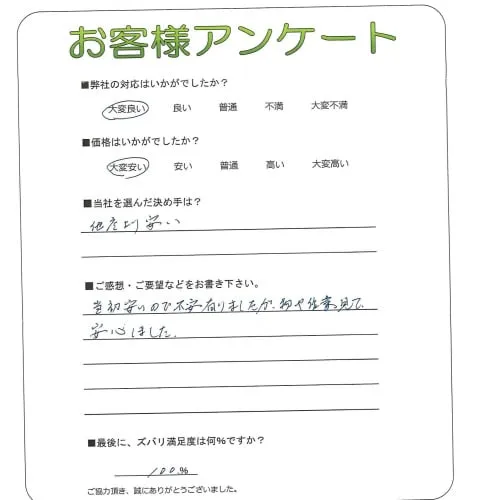 お客様アンケート
■弊社の対応はいかがでしたか？
大変良い 良い 普通 不満 大変不満
■価格はいかがでしたか？
大変安い 安い 普通 高い 大変高い
■当社を選んだ決め手は？
他店より安い
■ご感想・ご要望などをお書き下さい。
当初安いので不安有りましたが、物や作業見て、
安心しました。
■最後に、ズバリ満足度は何%ですか？
100%
ご協力頂き、誠にありがとうございました。